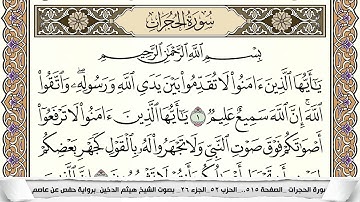 سُورَةُ الحُجُرَاتِ
بِسْمِ ٱللَّهِ ٱلرَّحْمَٰنِ ٱلرَّحِيمِ
يَٰٓأَيُّهَا ٱلَّذِينَ ءَامَنُوا۟ لَا تُقَدِّمُوا۟ بَيْنَ يَدَىِ ٱللَّهِ وَرَسُولِهِۦ ۖ وَٱتَّقُوا۟
ٱللَّهَ ۚ إِنَّ ٱللَّهَ سَمِيعٌ عَلِيمٌ ١ يَٰٓأَيُّهَا ٱلَّذِينَ ءَامَنُوا۟ لَا تَرْفَعُوٓا۟
أَصْوَٰتَكُمْ فَوْقَ صَوْتِ ٱلنَّبِىِّ وَلَا تَجْهَرُوا۟ لَهُۥ بِٱلْقَوْلِ كَجَهْرِ بَعْضِكُمْ
سورة الحجرات .. الصفحة ٥١٥.. الحزب ٥٢ ..الجزء ٢٦.. بصوت الشيخ هيثم الدخين برواية حفص عن عاصم